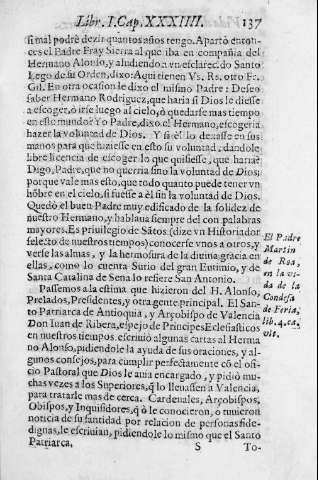 Libr. I. Cap. XXXIIII. 137
si mal podrè dezir quantos años tengo. Apartò enton-
ces el Padre Fray Sierra al que iba en compañia del
Hermano Alonso, y aludiendo a vn esclarec.do Santo
Lego de su Orden, dixo: Aqui tienen Vs. Rs. otro Fr.
Gil. En otra ocasion le dixo el mismo Padre: Deseo
saber Hermano Rodriguez, que haria si Dios le diesse
a escoger, ò irse luego al cielo, ò quedarse mas tiempo
en este mundo? Yo Padre, dixo el Hermano, escogeria
hazer la voluntad de Dios. Y si èl lo dexasse en sus
manos para que hiziesse en esto su voluntad, dandole
libre licencia de escoger lo que quisiesse, que haria?
Digo, Padre, que no querria sino la voluntad de Dios;
porque vale mas esto, que todo quanto puede tener vn
hõbre en el cielo, si fuesse a èl sin la voluntad de Dios.
Quedò el buen Padre muy edificado de la solidez de
nuestro Hermano, y hablaua siempre del con palabras
mayores. Es priuilegio de Sãtos (dize vn Historiador
selecto de nuestros tiempos) conocerse vnos a otros, y
verse las almas, y la hermosura de la diuina gracia en
ellas, como lo cuenta Surio del gran Eutimio, y de
Santa Catalina de Sena lo refiere San Antonio.
El Padre
Martin
de Roa,
en la vi-
da de la
Condesa
de Feria,
lib. 4. ca.
Passemos a la estima que hizieron del H. Alonso,
Prelados, Presidentes, y otra gente principal. El San-
to Patriarca de Antioquia, y Arçobispo de Valencia
Don Iuan de Ribera, espejo de Principes Eclesiasticos
en nuestros tiempos, escriuiò algunas cartas al Herma
no Alonso, pidiendole la ayuda de sus oraciones, y al-
gunos consejos, para cumplir perfectamente cõ el ofi-
cio Pastoral que Dios le auia encargado, y pidiò mu-
chas vezes a los Superiores, q̃ lo lleuassen a Valencia,
para tratarle mas de cerca. Cardenales, Arçobispos,
Obispos, y Inquisidores, q̃ lè conocieron, o tuuieron
noticia de su santidad por relacion de personas fide-
dignas, le escriuian, pidiendole lo mismo que el Santo
Patriarca. S To-